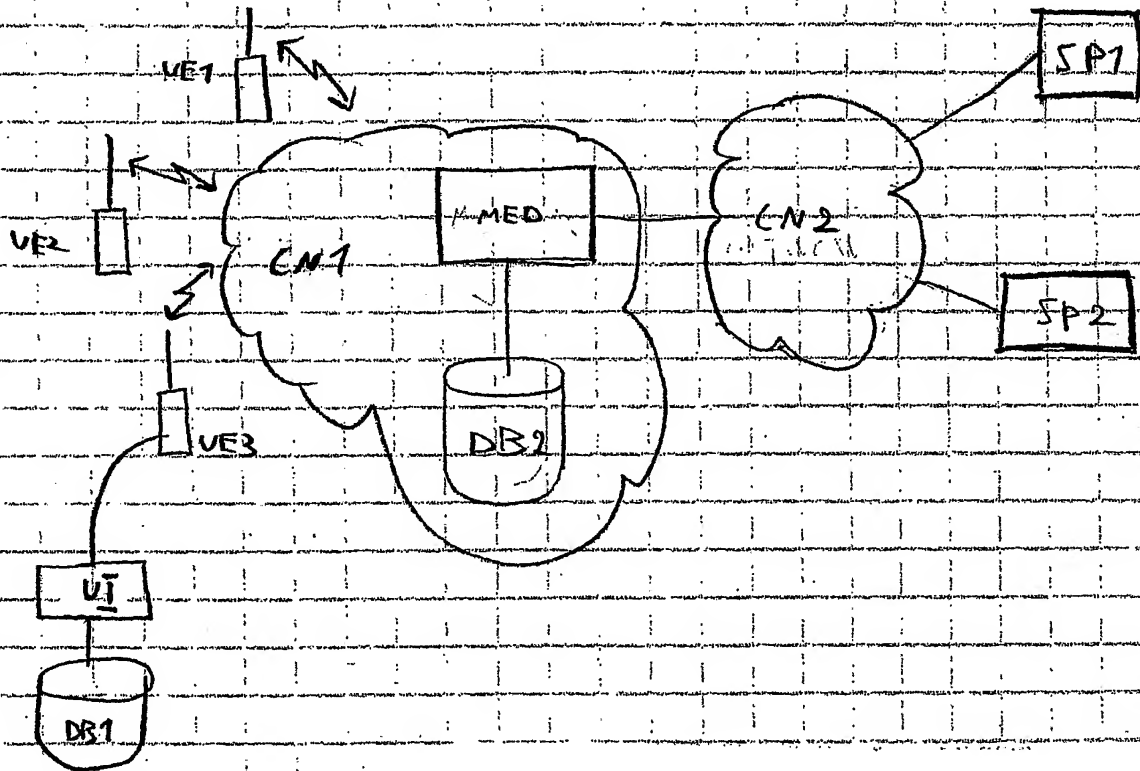 UE1
SP1
UE2
CN1
MED
CN2
SP2
UE3
DB2
UI
DB1